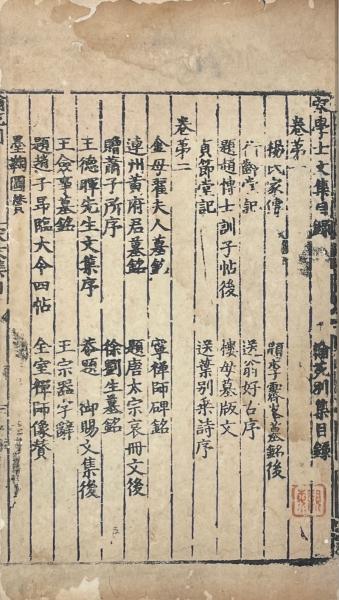 宋學士文集目錄 翰苑別集目錄
卷第一
楊氏家傳 題李霽峯墓銘後
六齋堂記 送翁好古序
題趙博士訓子帖後 樓母墓版文
貞節堂記 送葉別乘詩序
卷第二
金母翟夫人墓銘 寧禪師碑銘
連州黃府君墓銘 題唐太宗哀冊文後
贈蕭子所序 徐劉生墓銘
王德暉先生文集序 恭題 御賜文集後
王僉事墓銘 王宗器字辭
題趙子昂臨大令四帖 全室禪師像贊
墨鞠圖贊